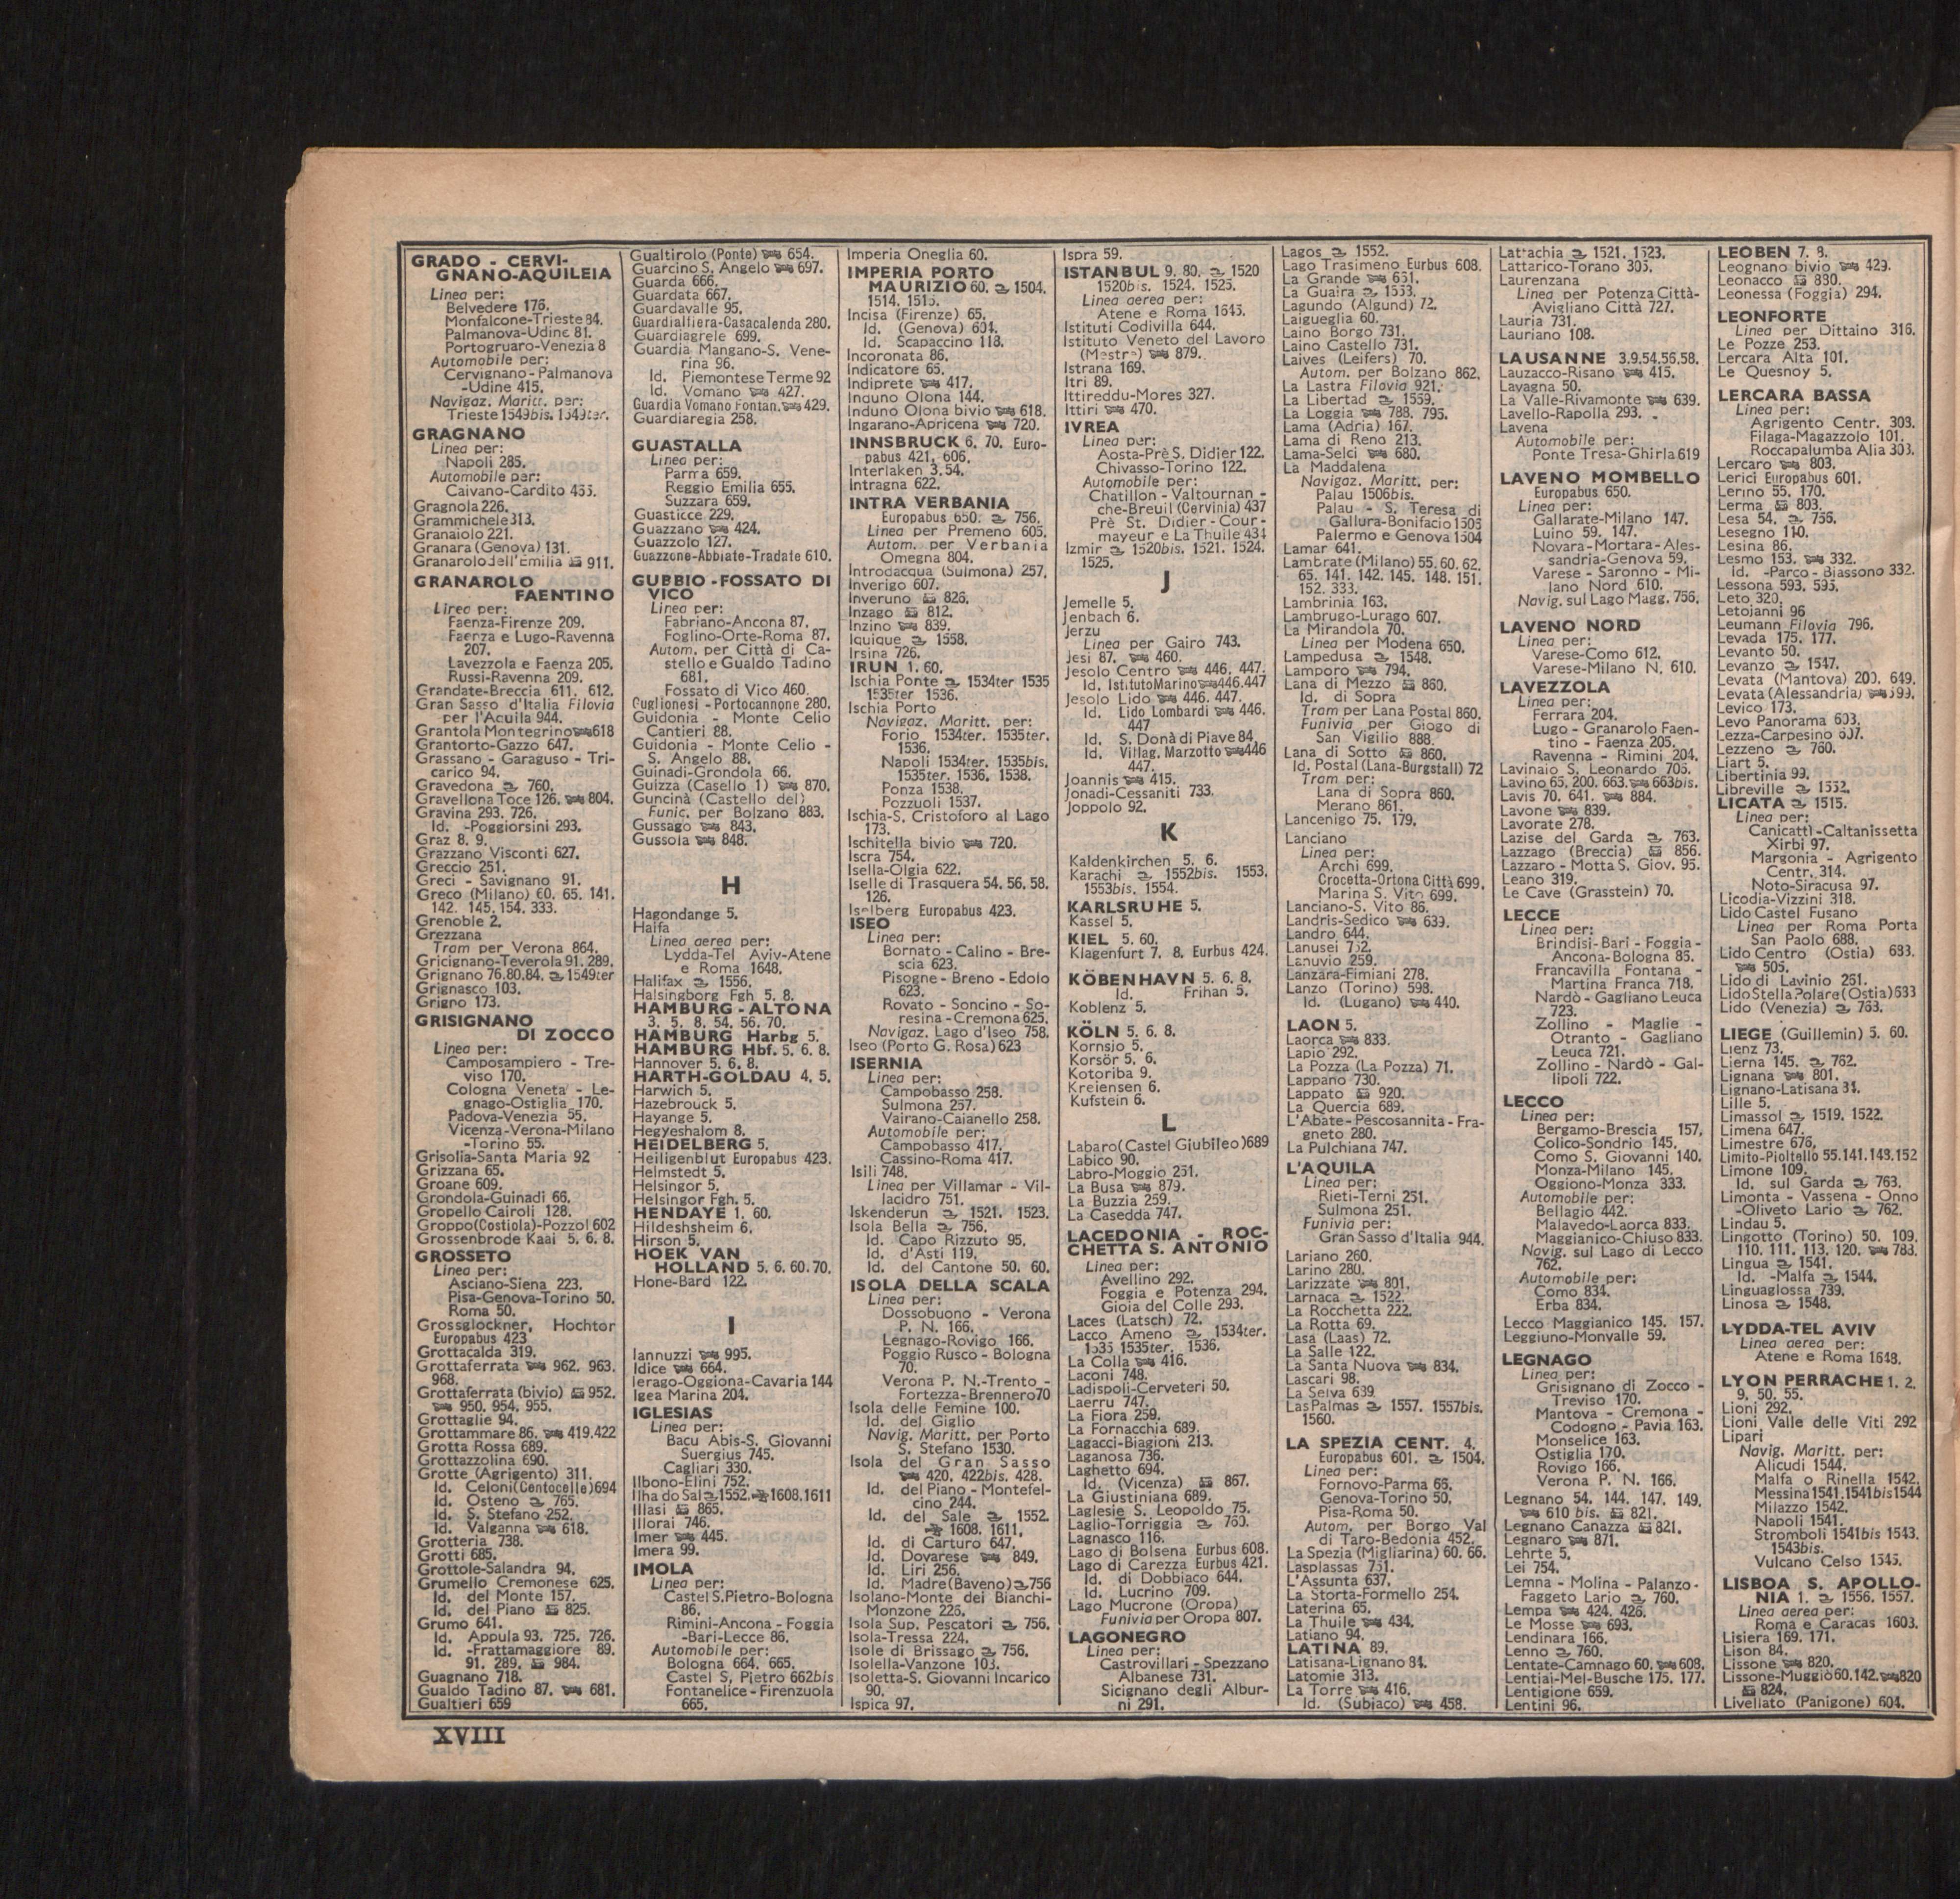 GRADO - CERVI-
GNANO-AQUILEIA
Linea per:
Belvedere 176.
Monfalcone-Trieste 84.
Palmanova-Udine 81.
Portogruaro-Venezia 8
Automobile per:
Cervignano-Palmanova
-Udine 415.
Navigaz. Maritt. per:
Trieste 1549bis. 1549ter.
GRAGNANO
Linea per:
Napoli 285.
Automobile per:
Caivano-Cardito 455.
Gragnola 226.
Grammichele 313.
Granaiolo 221.
Granara (Genova) 131.
Granarolo dell'Emilia 911.
GRANAROLO
FAENTINO
Linea per:
Faenza-Firenze 209.
Faenza e Lugo-Ravenna
207.
Lavezzola e Faenza 205.
Russi-Ravenna 209.
Grandate-Breccia 611. 612.
Gran Sasso d'Italia Filovia
per l'Aquila 944.
Grantola Montegrino 618
Grantorto-Gazzo 647.
Grassano - Garaguso - Tri-
carico 94.
Gravedona 760.
Gravellona Toce 126. 804.
Gravina 293. 726.
Id. -Poggiorsini 293.
Graz 8. 9.
Grazzano Visconti 627.
Greccio 251.
Greci - Savignano 91.
Greco (Milano) 60. 65. 141.
142. 145. 154. 333.
Grenoble 2.
Grezzana
Tram per Verona 864.
Gricignano-Teverola 91. 289.
Grignano 76.80.84. 1549ter
Grignasco 103.
Grigno 173.
GRISIGNANO
DI ZOCCO
Linea per:
Camposampiero - Tre-
viso 170.
Cologna Veneta - Le-
gnago-Ostiglia 170.
Padova-Venezia 55.
Vicenza-Verona-Milano
-Torino 55.
Grisolia-Santa Maria 92
Grizzana 65.
Groane 609.
Grondola-Guinadi 66.
Gropello Cairoli 128.
Groppo (Costiola)-Pozzol 602
Grossenbrode Kaai 5. 6. 8.
GROSSETO
Linea per:
Asciano-Siena 223.
Pisa-Genova-Torino 50.
Roma 50.
Grossglockner, Hochtor
Europabus 423
Grottacalda 319.
Grottaferrata 962. 963.
968.
Grottaferrata (bivio) 952.
950. 954. 955.
Grottaglie 94.
Grottammare 86. 419.422
Grotta Rossa 689.
Grottazzolina 690.
Grotte (Agrigento) 311.
Id. Celoni (Centocelle) 694
Id. Osteno 765.
Id. S. Stefano 252.
Id. Valganna 618.
Grotteria 738.
Grotti 685.
Grottole-Salandra 94.
Grumello Cremonese 625.
Id. del Monte 157.
Id. del Piano 825.
Grumo 641.
Id. Appula 93. 725. 726.
Id. -Frattamaggiore 89.
91. 289. 984.
Guagnano 718.
Gualdo Tadino 87. 681.
Gualtieri 659
Gualtirolo (Ponte) 654.
Guarcino S. Angelo 697.
Guarda 666.
Guardata 667.
Guardavalle 95.
Guardialfiera-Casacalenda 280.
Guardiagrele 699.
Guardia Mangano-S. Vene-
rina 96.
Id. Piemontese Terme 92
Id. Vomano 427.
Guardia Vomano Fontan. 429.
Guardiaregia 258.
GUASTALLA
Linea per:
Parma 659.
Reggio Emilia 655.
Suzzara 659.
Guasticce 229.
Guazzano 424.
Guazzolo 127.
Guazzone-Abbiate-Tradate 610.
GUBBIO - FOSSATO DI
VICO
Linea per:
Fabriano-Ancona 87.
Foglino-Orte-Roma 87.
Autom. per Città di Ca-
stello e Gualdo Tadino
681.
Fossato di Vico 460.
Guglionesi - Portocannone 280.
Guidonia - Monte Celio
Cantieri 88.
Guidonia - Monte Celio -
S. Angelo 88.
Guinadi-Grondola 66.
Guizza (Casello 1) 870.
Guncinà (Castello del)
Funic. per Bolzano 883.
Gussago 843.
Gussola 848.
H
Hagondange 5.
Haifa
Linea aerea per:
Lydda-Tel Aviv-Atene
e Roma 1648.
Halifax 1556.
Halsingborg Fgh 5. 8.
HAMBURG - ALTONA
3. 5. 8. 54. 56. 70.
HAMBURG Harbg 5.
HAMBURG Hbf. 5. 6. 8.
Hannover 5. 6. 8.
HARTH-GOLDAU 4. 5.
Harwich 5.
Hazebrouck 5.
Hayange 5.
Hegyeshalom 8.
HEIDELBERG 5.
Heiligenblut Europabus 423.
Helmstedt 5.
Helsingor 5.
Helsingor Fgh. 5.
HENDAYE 1. 60.
Hildeshsheim 6.
Hirson 5.
HOEK VAN
HOLLAND 5. 6. 60. 70.
Hone-Bard 122.
I
Iannuzzi 995.
Idice 664.
Ierago-Oggiona-Cavaria 144
Igea Marina 204.
IGLESIAS
Linea per:
Bacu Abis-S. Giovanni
Suergius 745.
Cagliari 330.
Ilbono-Elini 752.
Ilha do Sal 1552. 1608.1611
Illasi 865.
Illorai 746.
Imer 445.
Imera 99.
IMOLA
Linea per:
Castel S. Pietro-Bologna
86.
Rimini-Ancona - Foggia
-Bari-Lecce 86.
Automobile per:
Bologna 664. 665.
Castel S. Pietro 662bis
Fontanelice-Firenzuola
665.
Imperia Oneglia 60.
IMPERIA PORTO
MAURIZIO 60. 1504.
1514. 1515.
Incisa (Firenze) 65.
Id. (Genova) 604.
Id. Scapaccino 118.
Incoronata 86.
Indicatore 65.
Indiprete 417.
Induno Olona 144.
Induno Olona bivio 618.
Ingarano-Apricena 720.
INNSBRUCK 6. 70. Euro-
pabus 421. 606.
Interlaken 3. 54.
Intragna 622.
INTRA VERBANIA
Europabus 650. 756.
Linea per Premeno 605.
Autom. per Verbania
Omegna 804.
Introdacqua (Sulmona) 257.
Inverigo 607.
Inveruno 826.
Inzago 812.
Inzino 839.
Iquique 1558.
Irsina 726.
IRUN 1. 60.
Ischia Ponte 1534ter 1535
1535ter 1536.
Ischia Porto
Navigaz. Maritt. per:
Forio 1534ter. 1535ter.
1536.
Napoli 1534ter. 1535bis.
1535ter. 1536. 1538.
Ponza 1538.
Pozzuoli 1537.
Ischia-S. Cristoforo al Lago
173.
Ischitella bivio 720.
Iscra 754.
Isella-Olgia 622.
Iselle di Trasquera 54. 56. 58.
126.
Iselberg Europabus 423.
ISEO
Linea per:
Bornato - Calino - Bre-
scia 623.
Pisogne - Breno - Edolo
623.
Rovato - Soncino - So-
resina - Cremona 625.
Navigaz. Lago d'Iseo 758.
Iseo (Porto G. Rosa) 623
ISERNIA
Linea per:
Campobasso 258.
Sulmona 257.
Vairano-Caianello 258.
Automobile per:
Campobasso 417.
Cassino-Roma 417.
Isili 748.
Linea per Villamar - Vil-
lacidro 751.
Iskenderun 1521. 1523.
Isola Bella 756.
Id. Capo Rizzuto 95.
Id. d'Asti 119.
Id. del Cantone 50. 60.
ISOLA DELLA SCALA
Linea per:
Dossobuono - Verona
P. N. 166.
Legnago-Rovigo 166.
Poggio Rusco - Bologna
70.
Verona P. N.-Trento -
Fortezza-Brennero 70
Isola delle Femine 100.
Id. del Giglio
Navig. Maritt. per Porto
S. Stefano 1530.
Isola del Gran Sasso
420. 422bis. 428.
Id. del Piano - Montefel-
cino 244.
Id. del Sale 1552.
1608. 1611.
Id. di Carturo 647.
Id. Dovarese 849.
Id. Liri 256.
Id. Madre (Baveno) 756
Isolano-Monte dei Bianchi-
Monzone 226.
Isola Sup. Pescatori 756.
Isola-Tressa 224.
Isole di Brissago 756.
Isolella-Vanzone 103.
Isoletta-S. Giovanni Incarico
90.
Ispica 97.
Ispra 59.
ISTANBUL 9. 80. 1520
1520bis. 1524. 1525.
Linea aerea per:
Atene e Roma 1645.
Istituti Codivilla 644.
Istituto Veneto del Lavoro
(Mestre) 879.
Istrana 169.
Itri 89.
Ittireddu-Mores 327.
Ittiri 470.
IVREA
Linea per:
Aosta-Prè S. Didier 122.
Chivasso-Torino 122.
Automobile per:
Chatillon - Valtournan -
che-Breuil (Cervinia) 437
Prè St. Didier - Cour-
mayeur e La Thuile 434
Izmir 1520bis. 1521. 1524.
1525.
J
Jemelle 5.
Jenbach 6.
Jerzu
Linea per Gairo 743.
Jesi 87. 460.
Jesolo Centro 446. 447.
Id. Istituto Marino 446.447
Jesolo Lido 446. 447.
Id. Lido Lombardi 446.
447
Id. S. Donà di Piave 84
Id. Villag. Marzotto 446
447.
Joannis 415.
Jonadi-Cessaniti 733.
Joppolo 92.
K
Kaldenkirchen 5. 6.
Karachi 1552bis. 1553.
1553bis. 1554.
KARLSRUHE 5.
Kassel 5.
KIEL 5. 60.
Klagenfurt 7. 8. Eurbus 424.
KÖBENHAVN 5. 6. 8.
Id. Frihan 5.
Koblenz 5.
KÖLN 5. 6. 8.
Kornsio 5.
Korsör 5. 6.
Kotoriba 9.
Kreiensen 6.
Kufstein 6.
L
Labaro (Castel Giubileo) 689
Labico 90.
Labro-Moggio 251.
La Busa 879.
La Buzzia 259.
La Casedda 747.
LACEDONIA - ROC-
CHETTA S. ANTONIO
Linea per:
Avellino 292.
Foggia e Potenza 294.
Gioia del Colle 293.
Laces (Latsch) 72.
Lacco Ameno 1534ter.
1535 1535ter. 1536.
La Colla 416.
Laconi 748.
Ladispoli-Cerveteri 50.
Laerru 747.
La Fiora 259.
La Fornacchia 689.
Lagacci-Biagioni 213.
Laganosa 736.
Laghetto 694.
Id. (Vicenza) 867.
La Giustiniana 689.
Laglesie S. Leopoldo 75.
Laglio-Torriggia 760.
Lagnasco 116.
Lago di Bolsena Eurbus 608.
Lago di Carezza Eurbus 421.
Id. di Dobbiaco 644.
Id. Lucrino 709.
Lago Mucrone (Oropa)
Funivia per Oropa 807.
LAGONEGRO
Linea per:
Castrovillari - Spezzano
Albanese 731.
Sicignano degli Albur-
ni 291.
Lagos 1552.
Lago Trasimeno Eurbus 608.
La Grande 651.
La Guaira 1553.
Lagundo (Algund) 72.
Laigueglia 60.
Laino Borgo 731.
Laino Castello 731.
Laives (Leifers) 70.
Autom. per Bolzano 862.
La Lastra Filovia 921.
La Libertad 1559.
La Loggia 788. 795.
Lama (Adria) 167.
Lama di Reno 213.
Lama-Selci 680.
La Maddalena
Navigaz. Maritt. per:
Palau 1506bis.
Palau - S. Teresa di
Gallura-Bonifacio 1505
Palermo e Genova 1504
Lamar 641.
Lambrate (Milano) 55. 60. 62.
65. 141. 142. 145. 148. 151.
152. 333.
Lambrinia 163.
Lambrugo-Lurago 607.
La Mirandola 70.
Linea per Modena 650.
Lampedusa 1548.
Lamporo 794.
Lana di Mezzo 860.
Id. di Sopra
Tram per Lana Postal 860.
Funivia per Giogo di
San Vigilio 888.
Lana di Sotto 860.
Id. Postal (Lana-Burgstall) 72
Tram per:
Lana di Sopra 860.
Merano 861.
Lancenigo 75. 179.
Lanciano
Linea per:
Archi 699.
Crocetta-Ortona Città 699.
Marina S. Vito 699.
Lanciano-S. Vito 86.
Landris-Sedico 639.
Landro 644.
Lanusei 752.
Lanuvio 259.
Lanzara-Fimiani 278.
Lanzo (Torino) 598.
Id. (Lugano) 440.
LAON 5.
Laorca 833.
Lapio 292.
La Pozza (La Pozza) 71.
Lappano 730.
Lappato 920.
La Quercia 689.
L'Abate-Pescosannita-Fra-
gneto 280.
La Pulchiana 747.
L'AQUILA
Linea per:
Rieti-Terni 251.
Sulmona 251.
Funivia per:
Gran Sasso d'Italia 944.
Lariano 260.
Larino 280.
Larizzate 801.
Larnaca 1522.
La Rocchetta 222.
La Rotta 69.
Lasa (Laas) 72.
La Salle 122.
La Santa Nuova 834.
Lascari 98.
La Selva 639
Las Palmas 1557. 1557bis.
1560.
LA SPEZIA CENT. 4.
Europabus 601. 1504.
Linea per:
Fornovo-Parma 65.
Genova-Torino 50.
Pisa-Roma 50.
Autom. per Borgo Val
di Taro-Bedonia 452.
La Spezia (Migliarina) 60. 66.
Lasplassas 751.
L'Assunta 637.
La Storta-Formello 254.
Laterina 65.
La Thuile 434.
Latiano 94.
LATINA 89.
Latisana-Lignano 84.
Latomie 313.
La Torre 416.
Id. (Subiaco) 458.
Lattachia 1521. 1523.
Lattarico-Torano 305.
Laurenzana
Linea per Potenza Città-
Avigliano Città 727.
Lauria 731.
Lauriano 108.
LAUSANNE 3.9.54.56.58.
Lauzacco-Risano 415.
Lavagna 50.
La Valle-Rivamonte 639.
Lavello-Rapolla 293.
Lavena
Automobile per:
Ponte Tresa-Ghirla 619
LAVENO MOMBELLO
Europabus 650.
Linea per:
Gallarate-Milano 147.
Luino 59. 147.
Novara-Mortara-Ales-
sandria-Genova 59.
Varese - Saronno - Mi-
lano Nord 610.
Navig. sul Lago Magg. 756.
LAVENO NORD
Linea per:
Varese-Como 612.
Varese-Milano N. 610.
LAVEZZOLA
Linea per:
Ferrara 204.
Lugo - Granarolo Faen-
tino - Faenza 205.
Ravenna - Rimini 204.
Lavinaio S. Leonardo 705.
Lavino 65. 200. 663. 663bis.
Lavis 70. 641. 884.
Lavone 839.
Lavorate 278.
Lazise del Garda 763.
Lazzago (Breccia) 856.
Lazzaro-Motta S. Giov. 95.
Leano 319.
Le Cave (Grasstein) 70.
LECCE
Linea per:
Brindisi-Bari - Foggia -
Ancona-Bologna 86.
Francavilla Fontana -
Martina Franca 718.
Nardò - Gagliano Leuca
723.
Zollino - Maglie -
Otranto - Gagliano
Leuca 721.
Zollino - Nardò - Gal-
lipoli 722.
LECCO
Linea per:
Bergamo-Brescia 157.
Colico-Sondrio 145.
Como S. Giovanni 140.
Monza-Milano 145.
Oggiono-Monza 333.
Automobile per:
Bellagio 442.
Malavedo-Laorca 833.
Maggianico-Chiuso 833.
Navig. sul Lago di Lecco
762.
Automobile per:
Como 834.
Erba 834.
Lecco Maggianico 145. 157.
Leggiuno-Monvalle 59.
LEGNAGO
Linea per:
Grisignano di Zocco -
Treviso 170.
Mantova - Cremona -
Codogno - Pavia 163.
Monselice 163.
Ostiglia 170.
Rovigo 166.
Verona P. N. 166.
Legnano 54. 144. 147. 149.
610 bis. 821.
Legnano Canazza 821.
Legnaro 871.
Lehrte 5.
Lei 754.
Lemna - Molina - Palanzo-
Faggeto Lario 760.
Lempa 424. 426.
Le Mosse 693.
Lendinara 166.
Lenno 760.
Lentate-Camnago 60. 608.
Lentiai-Mel-Busche 175. 177.
Lentigione 659.
Lentini 96.
LEOBEN 7. 8.
Leognano bivio 429.
Leonacco 880.
Leonessa (Foggia) 294.
LEONFORTE
Linea per Dittaino 316.
Le Pozze 253.
Lercara Alta 101.
Le Quesnoy 5.
LERCARA BASSA
Linea per:
Agrigento Centr. 303.
Filaga-Magazzolo 101.
Roccapalumba Alia 303.
Lercaro 803.
Lerici Europabus 601.
Lerino 55. 170.
Lerma 803.
Lesa 54. 756.
Lesegno 110.
Lesina 86.
Lesmo 153. 332.
Id. -Parco - Biassono 332.
Lessona 593. 595.
Leto 320.
Letojanni 96
Leumann Filovia 796.
Levada 175. 177.
Levanto 50.
Levanzo 1547.
Levata (Mantova) 200. 649.
Levata (Alessandria) 599.
Levico 173.
Levo Panorama 603.
Lezza-Carpesino 607.
Lezzeno 760.
Liart 5.
Libertinia 99.
Libreville 1552.
LICATA 1515.
Linea per:
Canicattì-Caltanissetta
Xirbi 97.
Margonia - Agrigento
Centr. 314.
Noto-Siracusa 97.
Licodia-Vizzini 318.
Lido Castel Fusano
Linea per Roma Porta
San Paolo 688.
Lido Centro (Ostia) 683.
505.
Lido di Lavinio 261.
Lido Stella Polare (Ostia) 633
Lido (Venezia) 763.
LIEGE (Guillemin) 5. 60.
Lienz 73.
Lierna 145. 762.
Lignana 801.
Lignano-Latisana 84.
Lille 5.
Limassol 1519. 1522.
Limena 647.
Limestre 676.
Limito-Pioltello 55.141.148.152
Limone 109.
Id. sul Garda 763.
Limonta - Vassena - Onno
-Oliveto Lario 762.
Lindau 5.
Lingotto (Torino) 50. 109.
110. 111. 113. 120. 783.
Lingua 1541.
Id. -Malfa 1544.
Linguaglossa 739.
Linosa 1548.
LYDDA-TEL AVIV
Linea aerea per:
Atene e Roma 1648.
LYON PERRACHE 1. 2.
9. 50. 55.
Lioni 292.
Lioni Valle delle Viti 292
Lipari
Navig. Maritt. per:
Alicudi 1544.
Malfa o Rinella 1542.
Messina 1541.1541bis 1544
Milazzo 1542.
Napoli 1541.
Stromboli 1541bis 1543.
1543bis.
Vulcano Celso 1545.
LISBOA S. APOLLO-
NIA 1. 1556. 1557.
Linea aerea per:
Roma e Caracas 1603.
Lisiera 169. 171.
Lison 84.
Lissone 820.
Lissone-Muggiò 60.142. 820
824.
Livellato (Panigone) 604.
XVIII